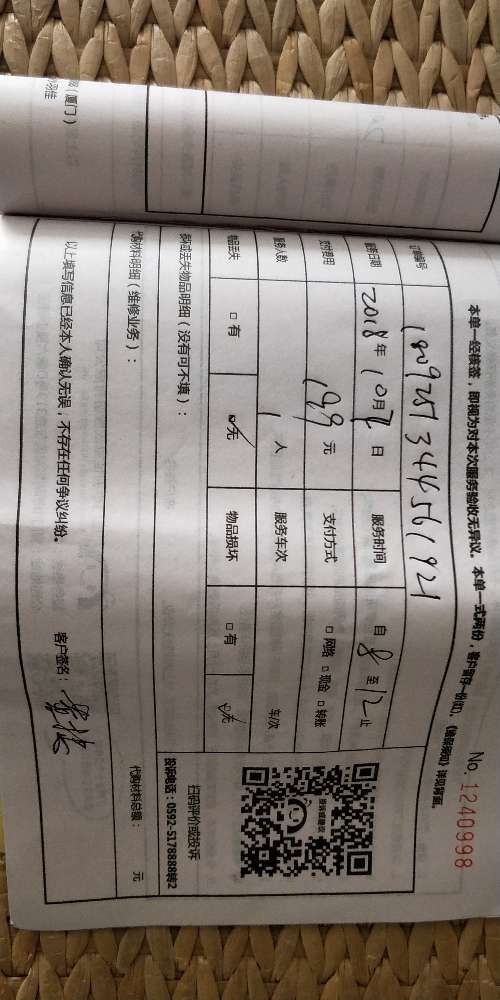 No. 1240998
本单一经核签，即视为对本次服务验收无异议。本单一式两份，客户留存一份(红)，《确保须知》详见背面。
订单编号
服务日期 2018年10月7日 服务时间 自8至12止
支付费用 199元 支付方式 □网络 □现金 □转账
服务人数 1人 服务车次 车/次
物品丢失 □有 □无 物品损坏 □有 □无
损坏或丢失物品明细（没有可不填）：
扫码评价或投诉
投诉电话：0592-5178888转2
代购材料明细（维修业务）： 代购材料总额： 元
以上填写信息已经本人确认无误，不存在任何争议纠纷。 客户签名：
（厦门）